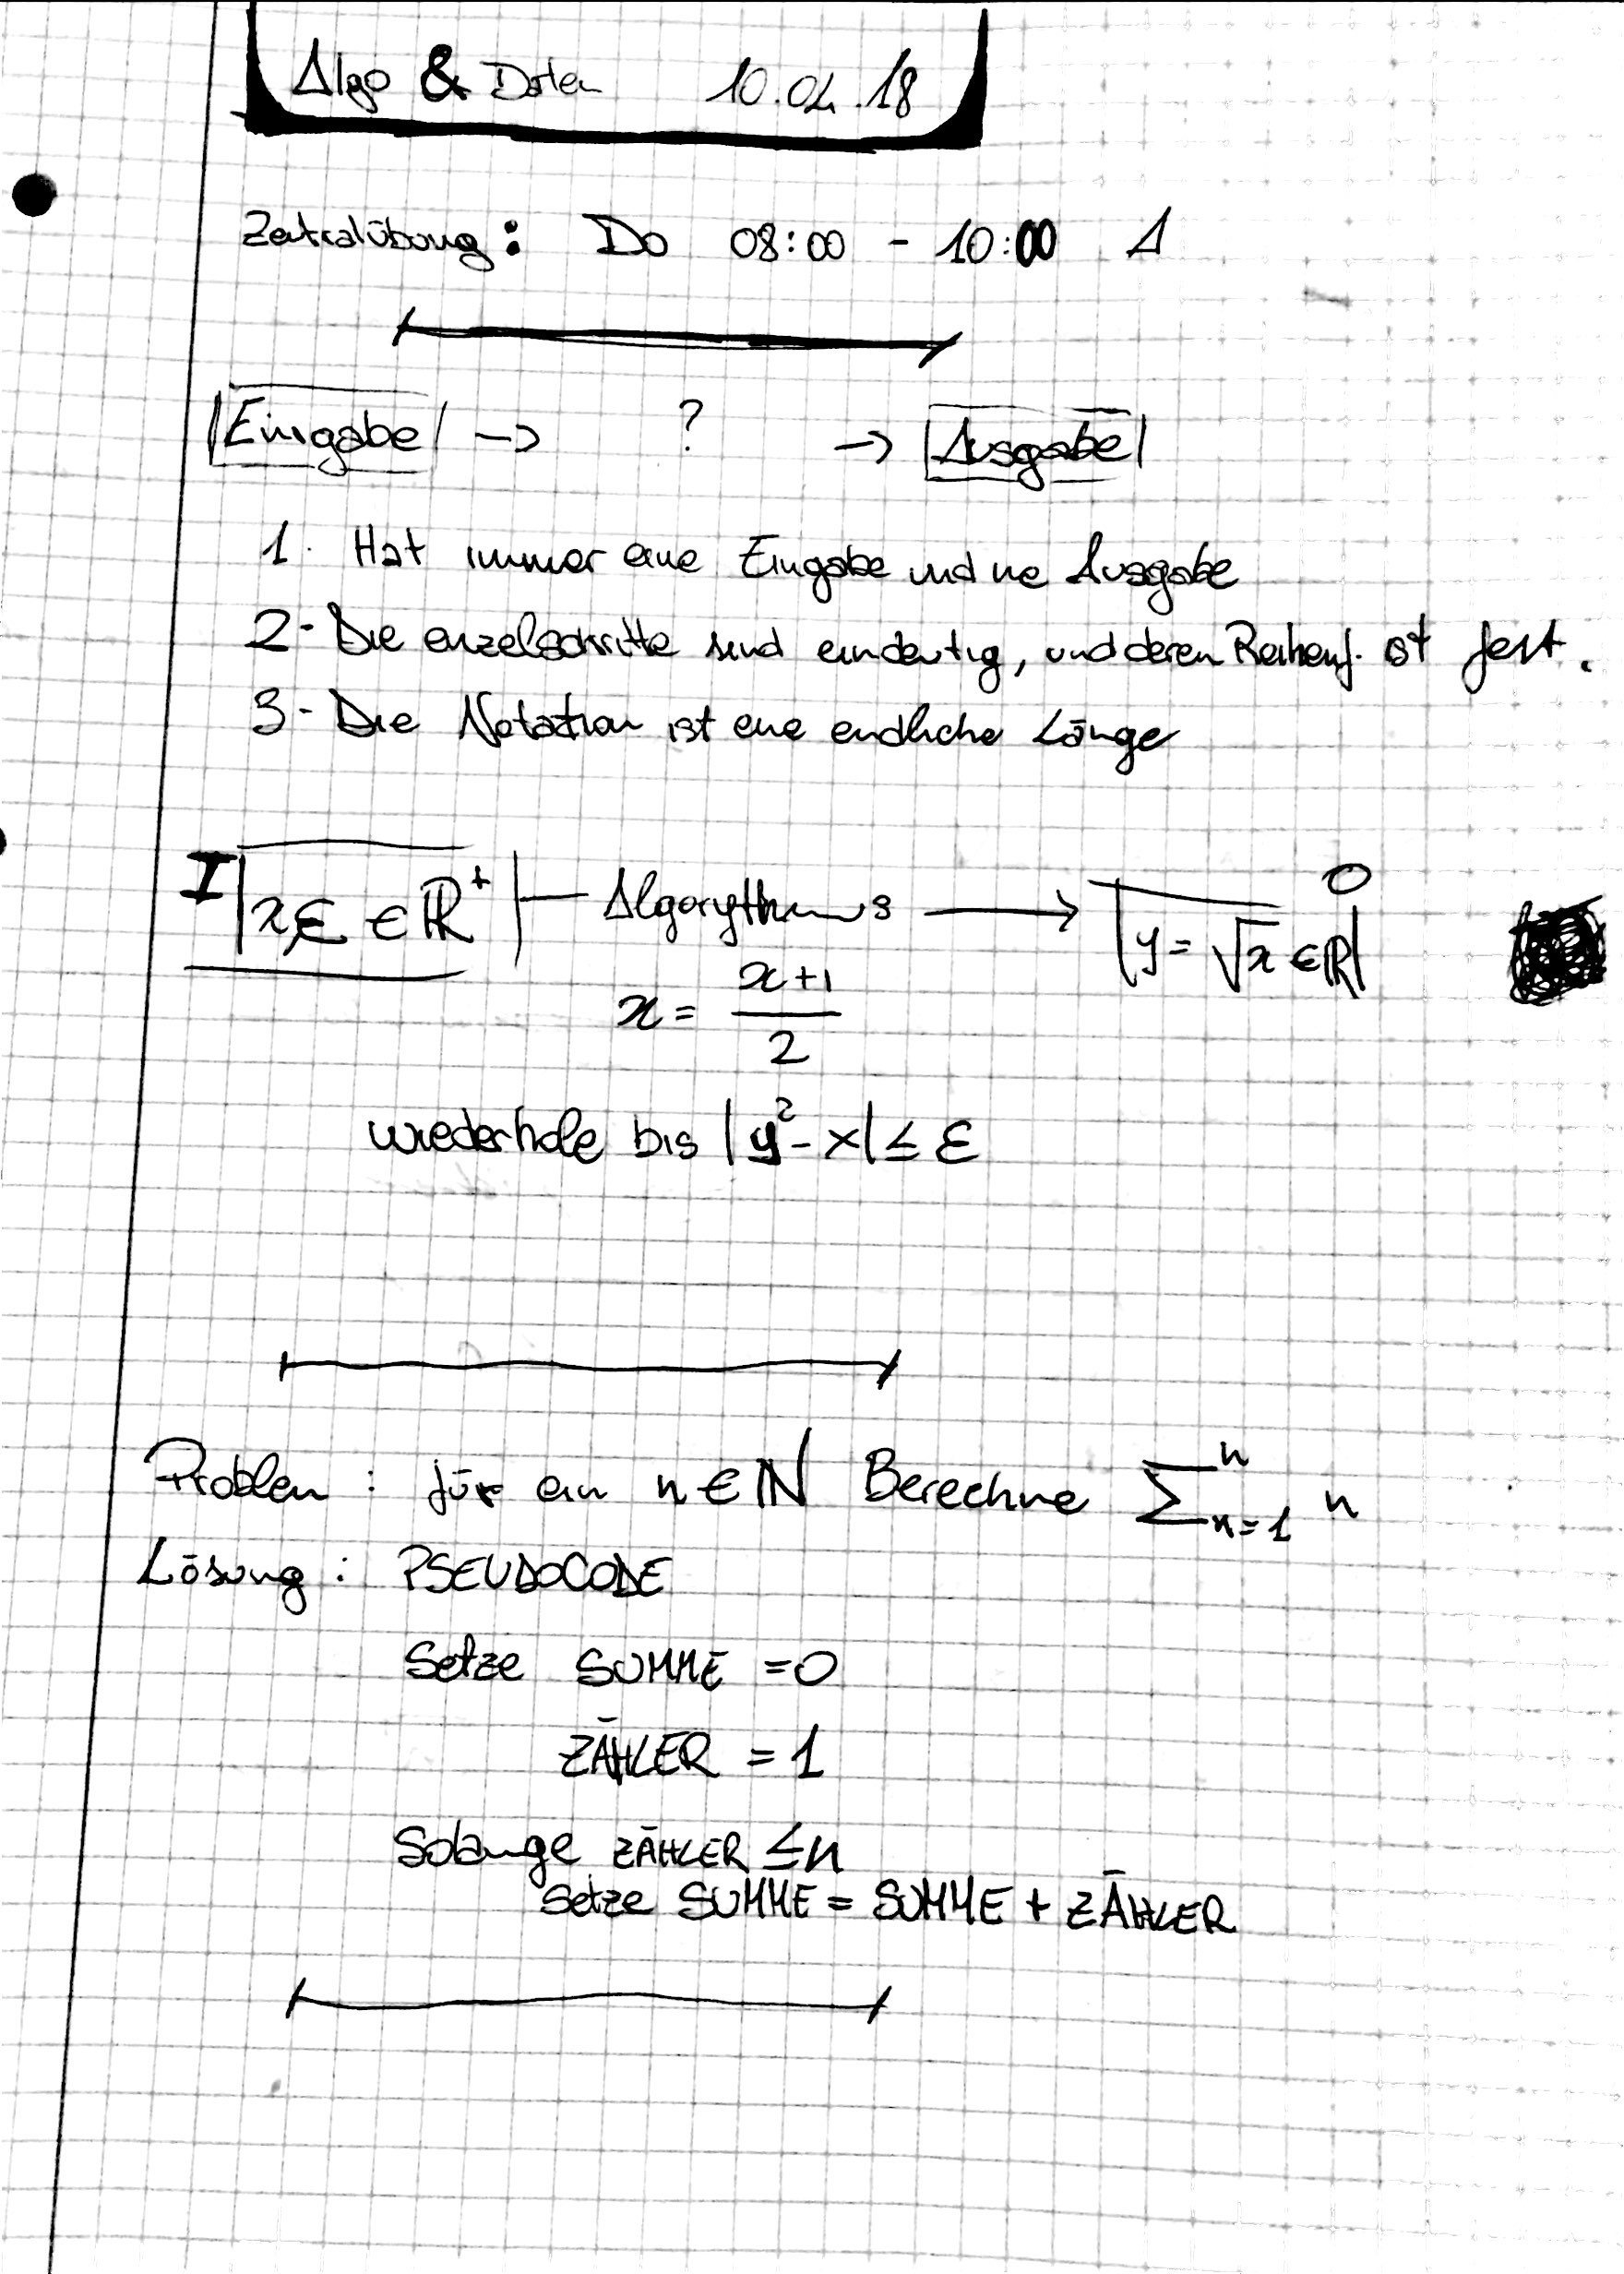 Algo & Daten 10.04.18
Zentralübung: Do 08:00 - 10:00 A
Eingabe -> ? -> Ausgabe
1. Hat immer eine Eingabe und ne Ausgabe
2- Die einzelschritte sind eindeutig, und deren Reihenf. ist fest.
3- Die Notation ist eine endliche Länge
I x,ε ∈ ℝ⁺ — Algorythmus → y = √x ∈ ℝ O
x = (x+1)/2
wiederhole bis |y²- x| ≤ ε
Problem : für ein n ∈ ℕ Berechne ∑ₙ₌₁ⁿ n
Lösung : PSEUDOCODE
Setze SUMME =0
ZÄHLER = 1
Solange ZÄHLER ≤ n
Setze SUMME = SUMME + ZÄHLER